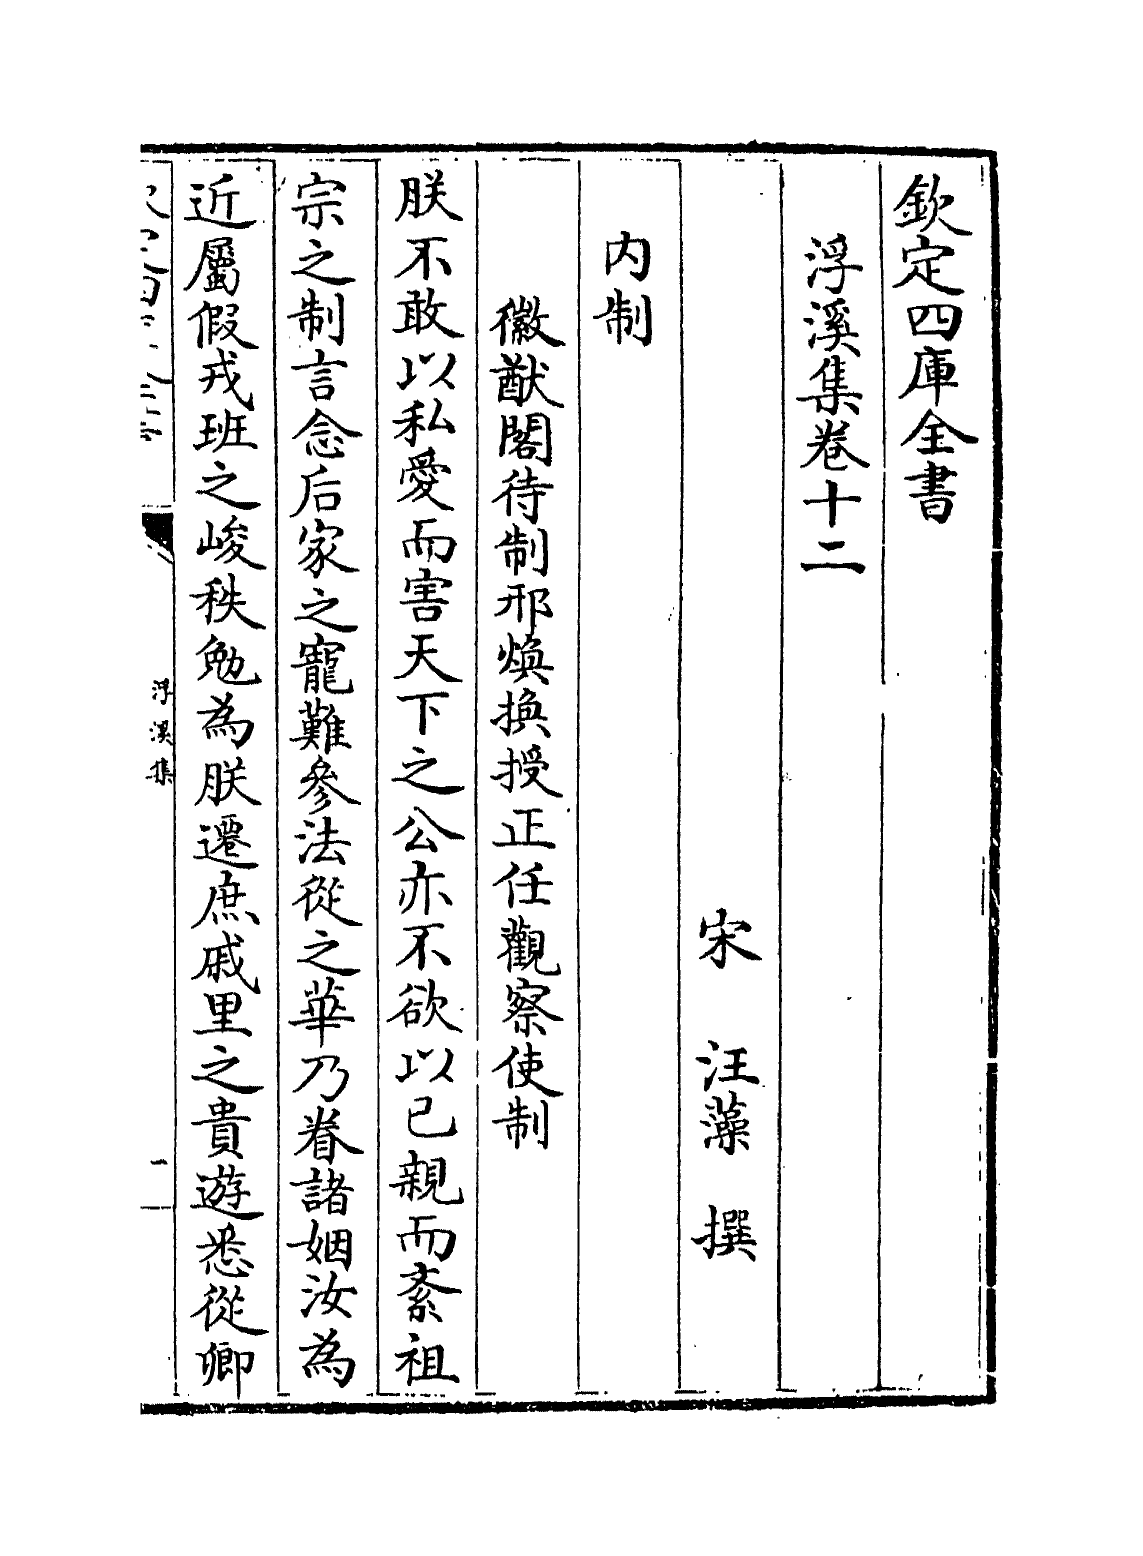 欽定四庫全書
浮溪集卷十二
宋　汪藻　撰
内制
徽猷閣待制邢煥換授正任觀察使制
朕不敢以私愛而害天下之公亦不欲以已親而紊祖
宗之制言念后家之寵難參法從之華乃眷諸姻汝為
近屬假戎班之峻秩勉為朕遷庶戚里之貴遊悉從卿
浮溪集
一